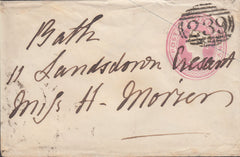 Bath
11 Lansdown Crescent
Miss H. Morier
239